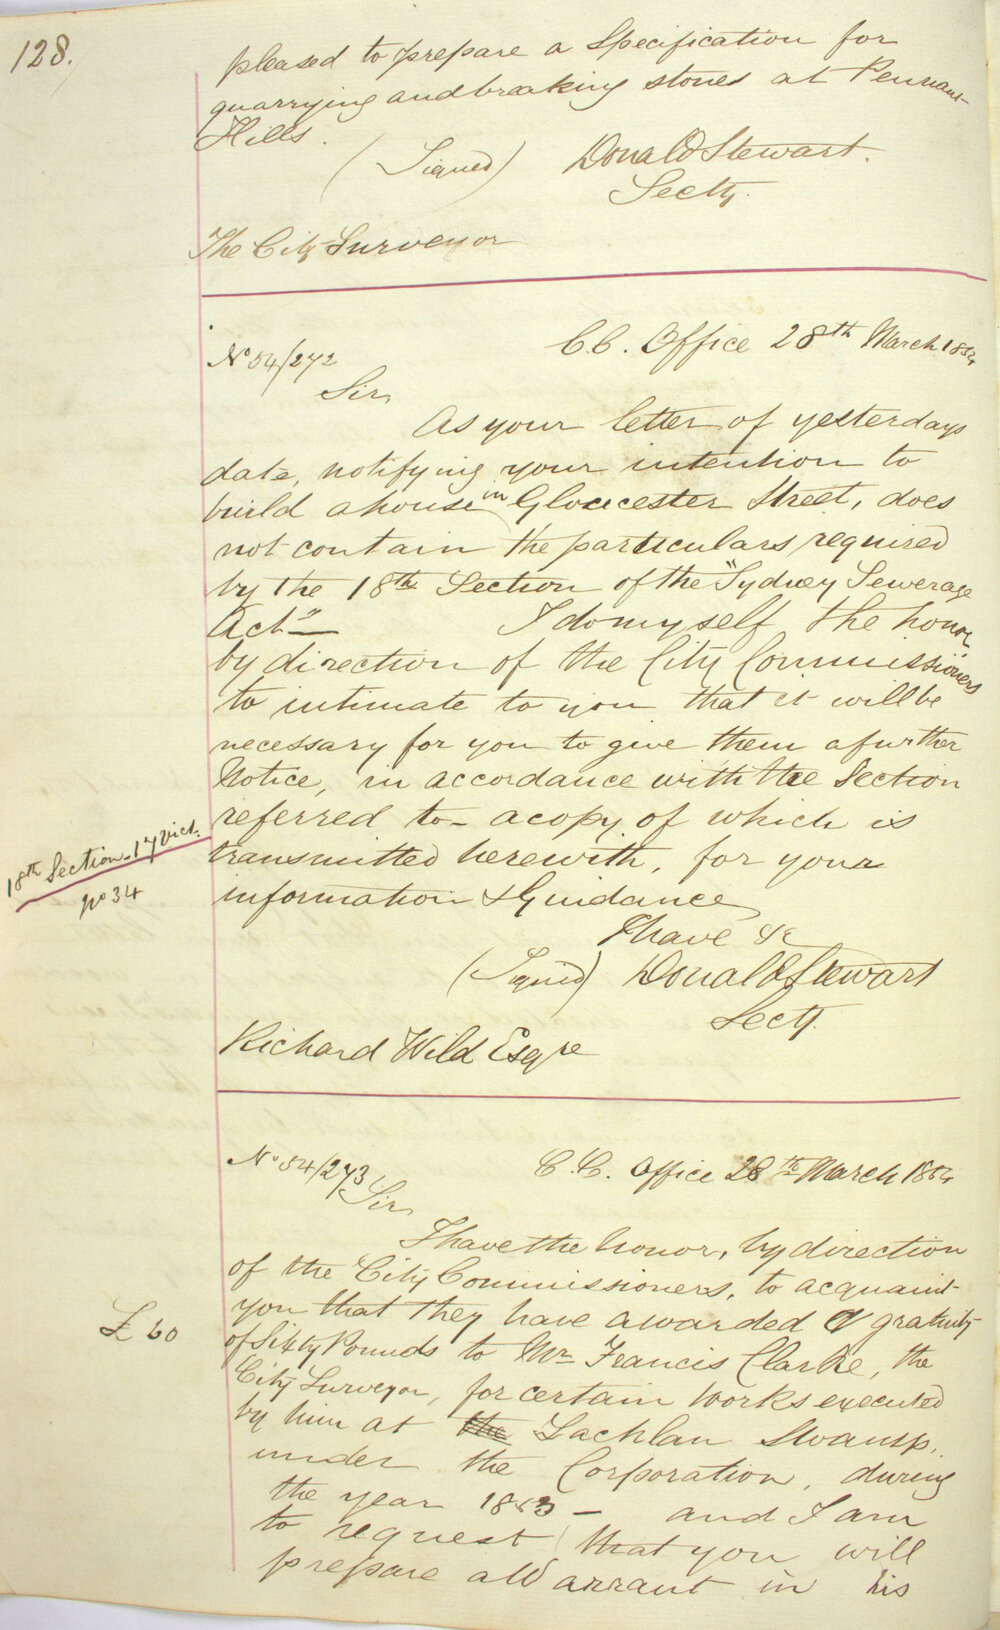 128.
pleased to prepare a Specification for
quarrying and breaking stones at Pennant
Hills.
(Signed) Donald Stewart.
Secty.
The City Surveyor
No 54/272
C.C. Office 28th March 1854
Sir,
As your letter of yesterdays
date, notifying your intention to
build a house in Gloucester Street, does
not contain the particulars required
by the 18th Section of the "Sydney Sewerage
Act" — I do myself the honor
by direction of the City Commissioners
to intimate to you that it will be
necessary for you to give them a further
Notice, in accordance with the Section
referred to - a copy of which is
18th Section. 17 Vict.
No 34
transmitted herewith, for your
information & Guidance
I have &c
(Signed) Donald Stewart
Secty.
Richard Wild Esqre
No 54/273
C.C. Office 28th March 1854
Sir,
I have the honor, by direction
of the City Commissioners, to acquaint
you that they have awarded a gratuity
£60
of Sixty Pounds to Mr Francis Clarke, the
City Surveyor, for certain works executed
by him at the Lachlan Swamp,
under the Corporation, during
the year 1853 — and I am
to request that you will
prepare a Warrant in his